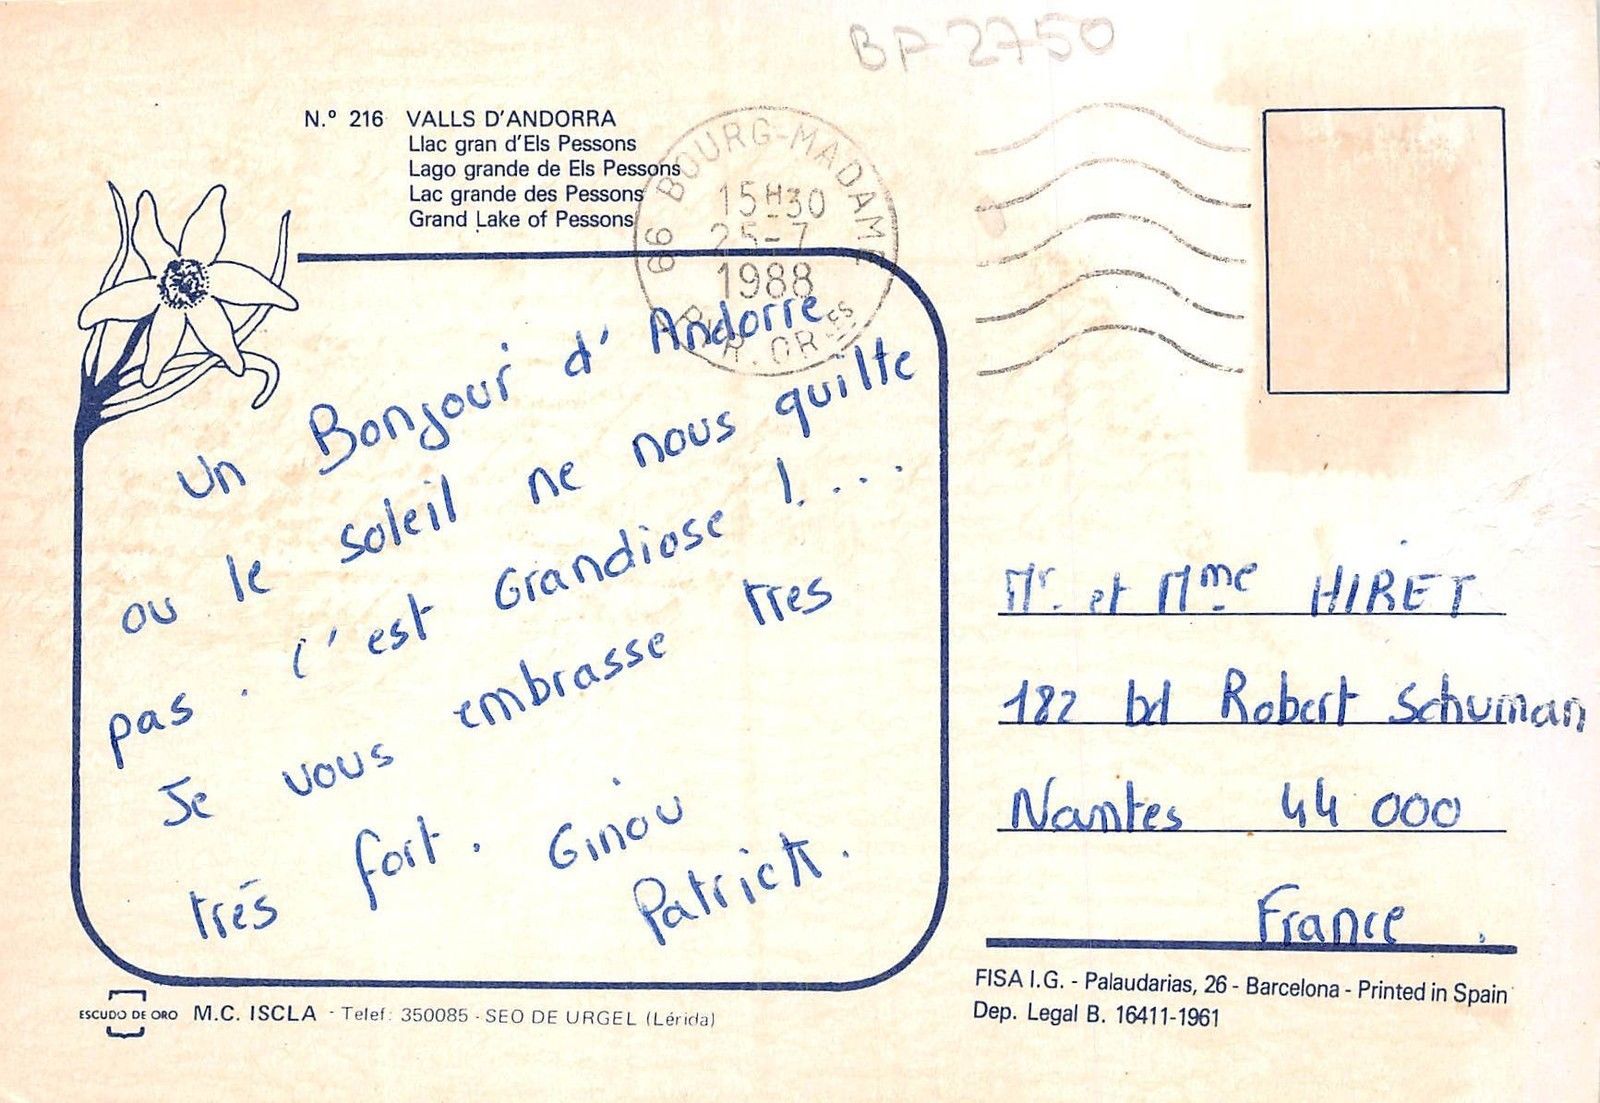 BP 2750
N.º 216 VALLS D'ANDORRA
Llac gran d'Els Pessons
Lago grande de Els Pessons
Lac grande des Pessons
Grand Lake of Pessons
66 BOURG-MADAME
15H30
25-7
1988
PYR. ORles
Un Bonjour d'Andorre
ou le soleil ne nous quitte
pas. C'est Grandiose !...
Je vous embrasse tres
très fort. Ginou
Patrick.
Mr. et Mme HIRET
182 bd Robert Schuman
Nantes 44 000
France.
ESCUDO DE ORO M.C. ISCLA - Telef: 350085 - SEO DE URGEL (Lérida)
FISA I.G. - Palaudarias, 26 - Barcelona - Printed in Spain
Dep. Legal B. 16411-1961